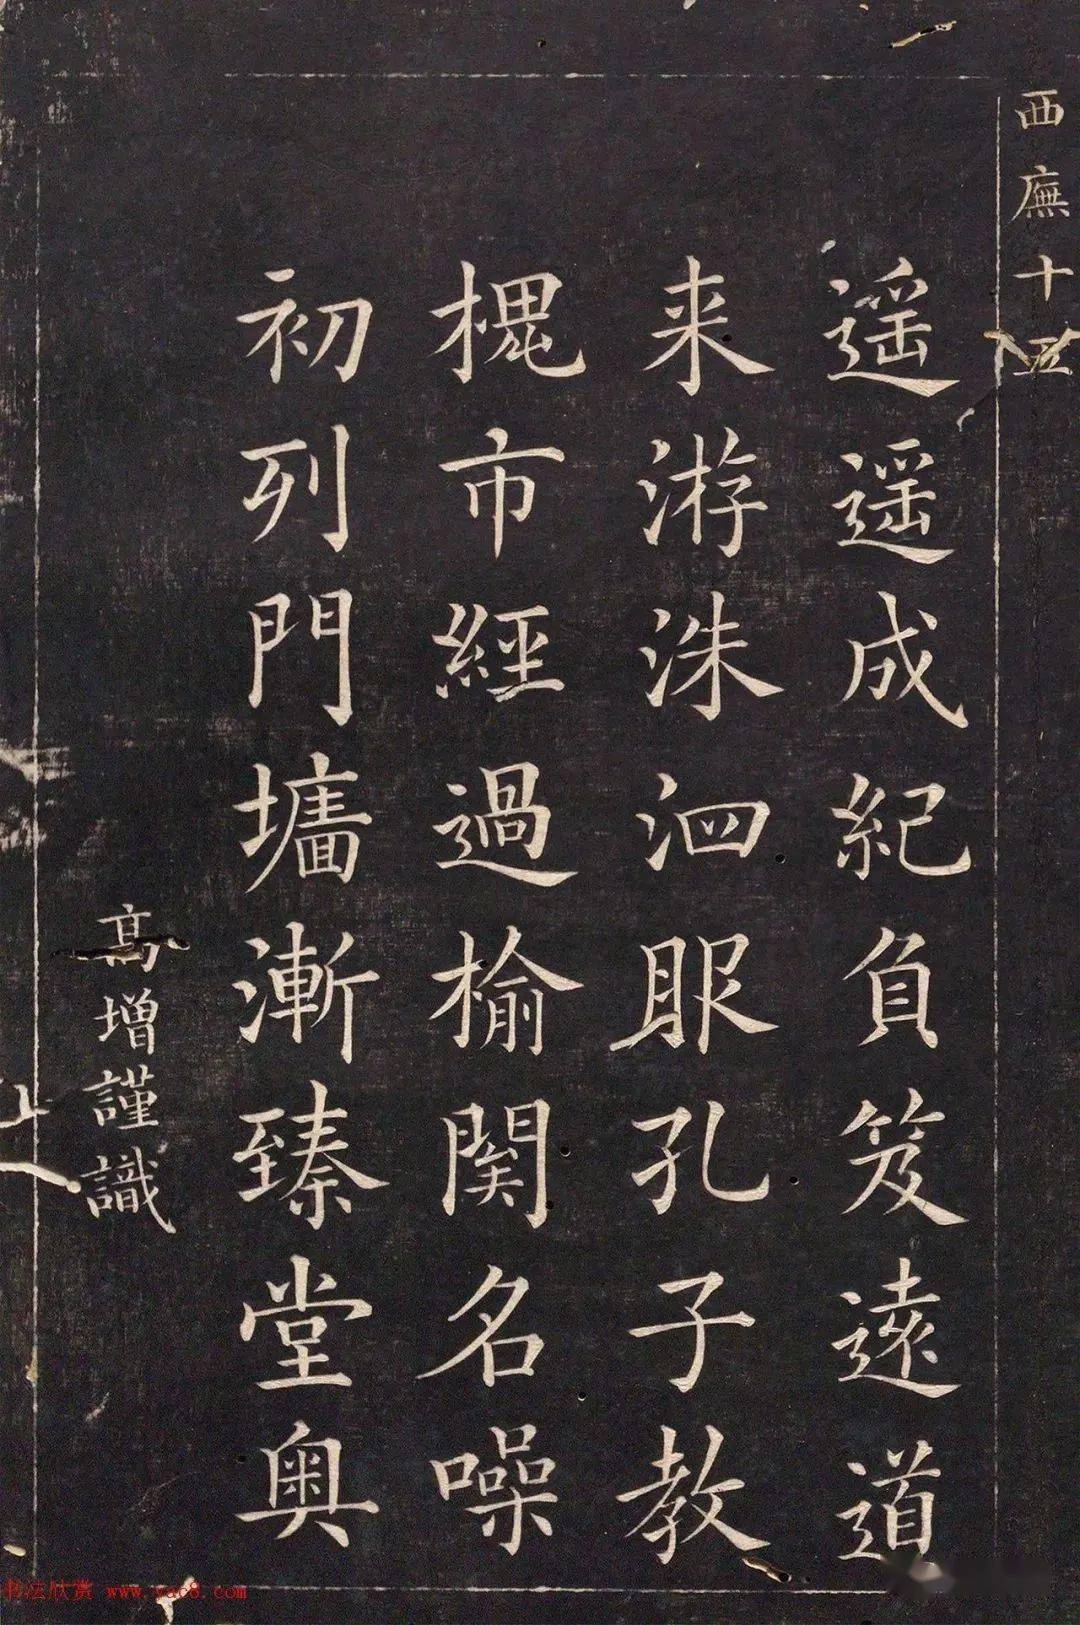 西廡十五
遥遥成紀負笈遠道
来游洙泗眼孔子教
槐市經過榆関名噪
初列門墻漸臻堂奧
高增謹識
书法欣赏 www.yac8.com